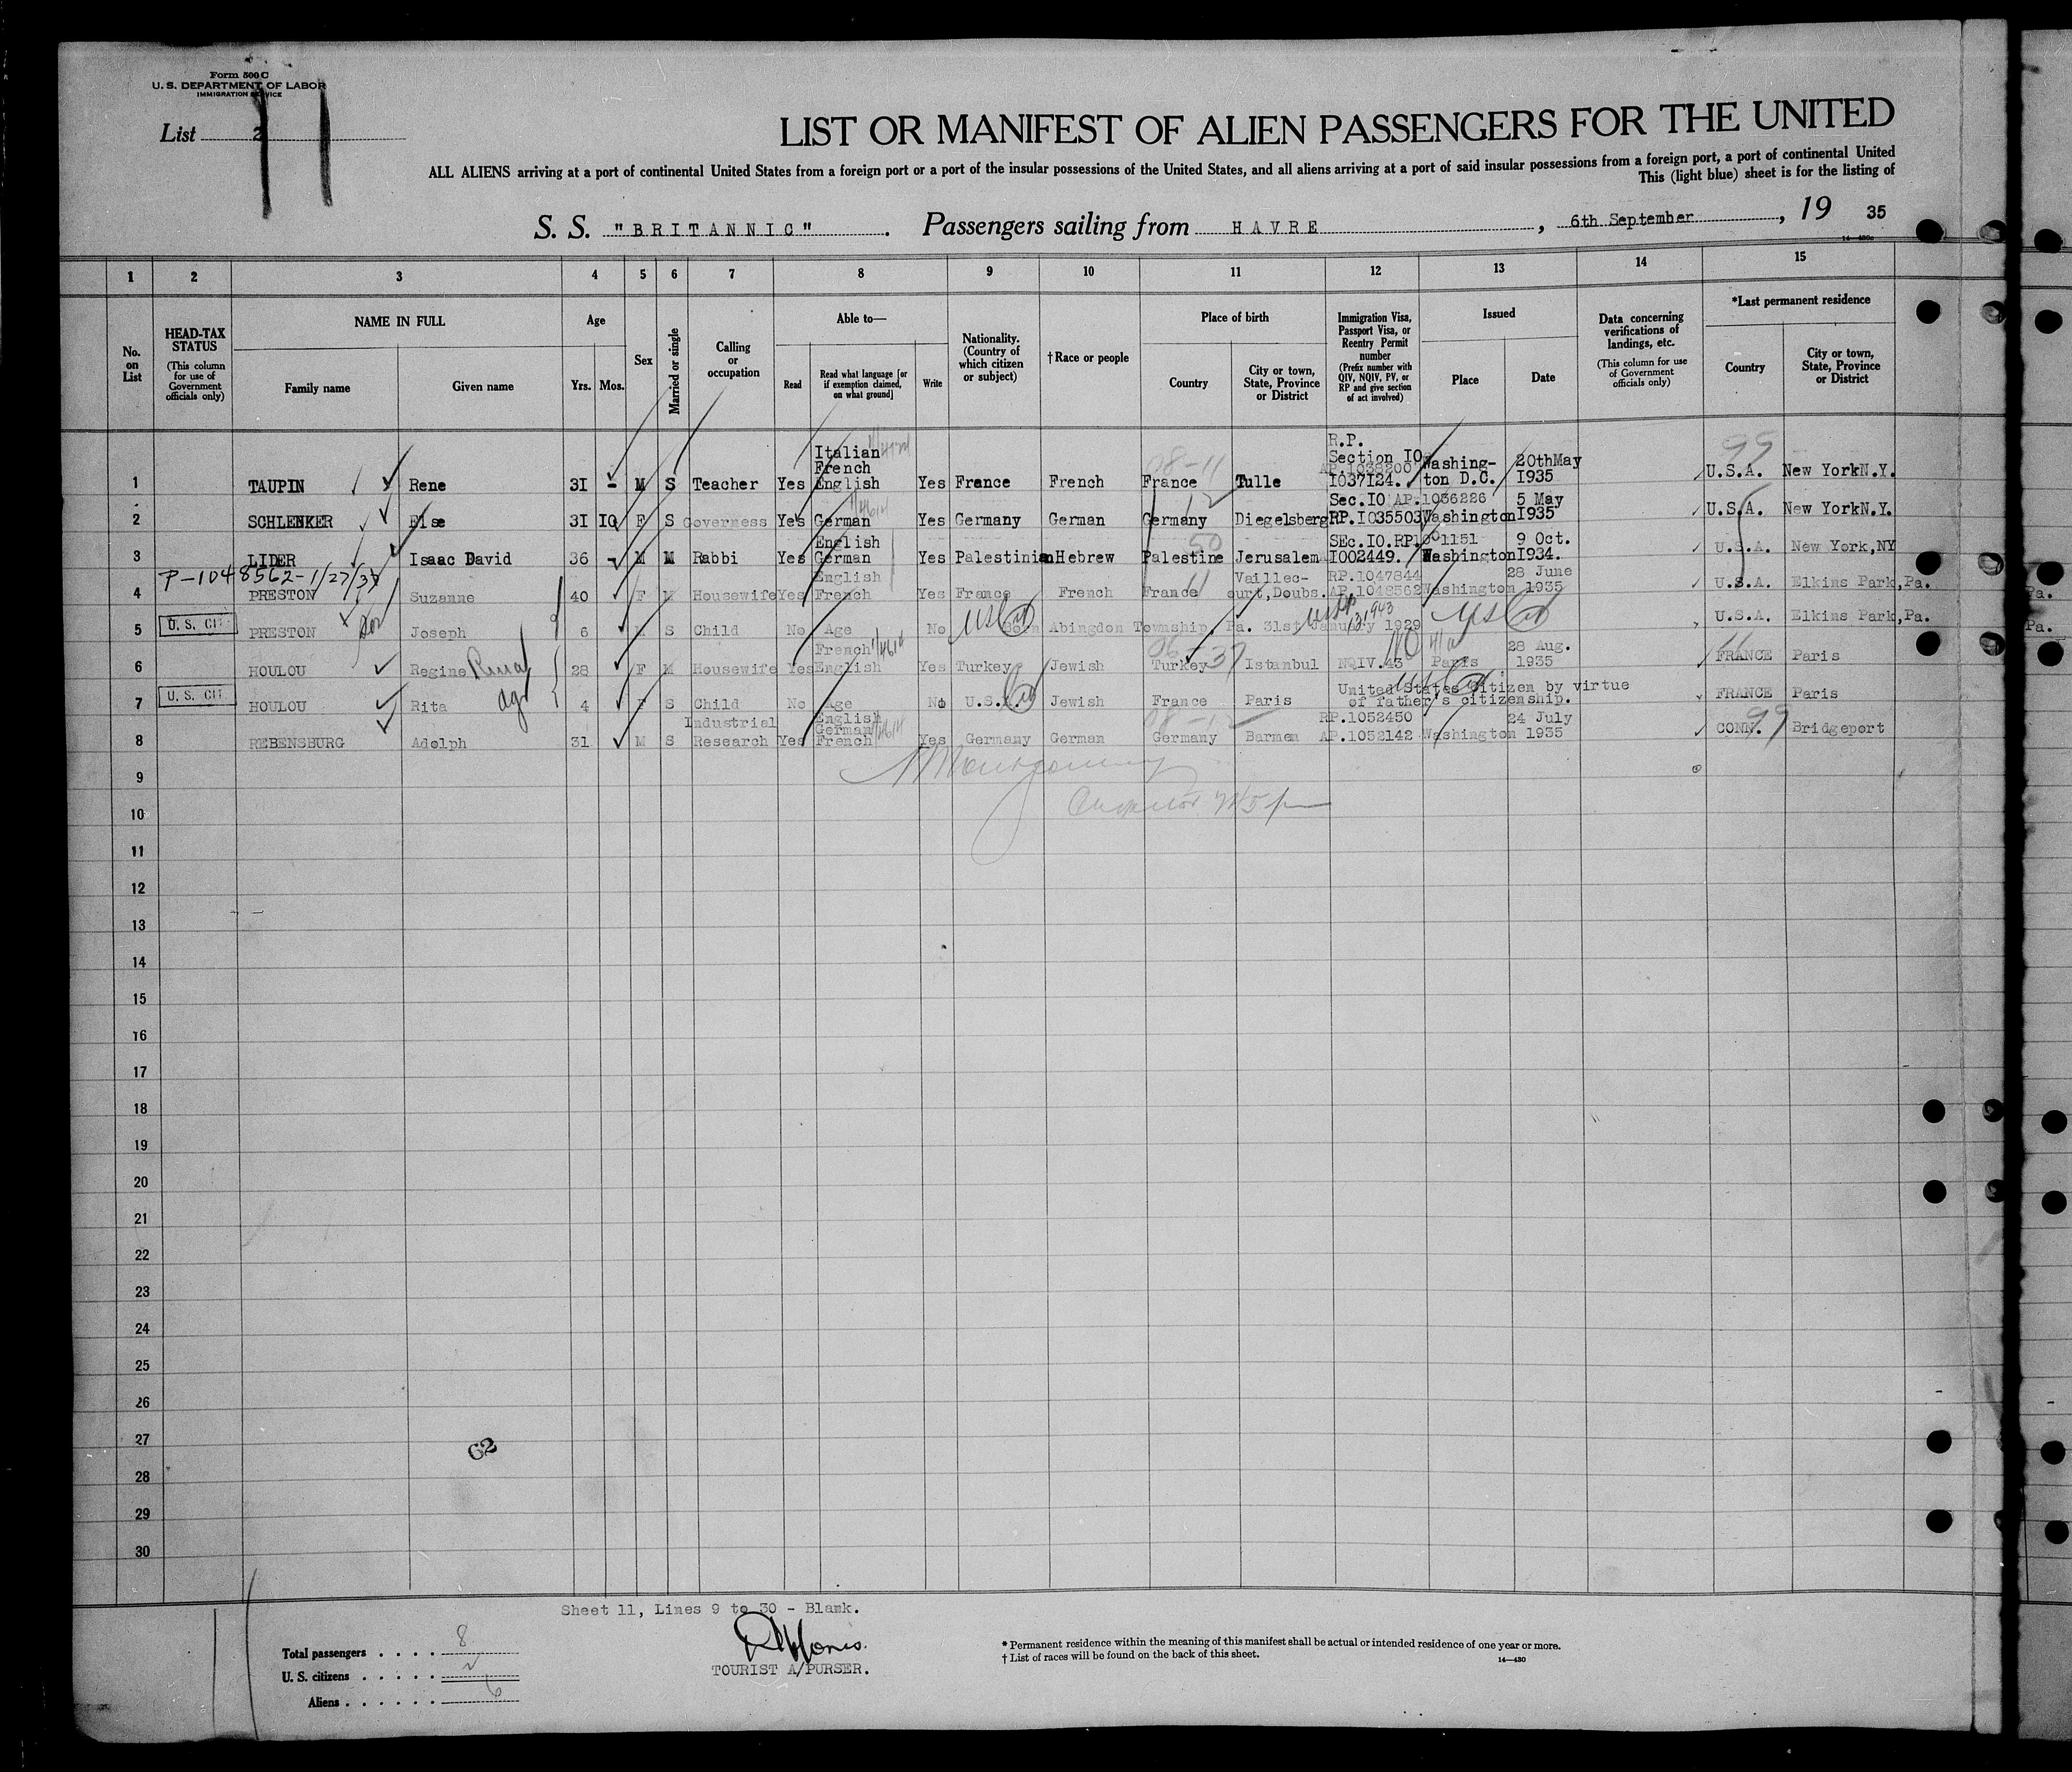 Form 500 C
U. S. DEPARTMENT OF LABOR
IMMIGRATION SERVICE
List 2
11
LIST OR MANIFEST OF ALIEN PASSENGERS FOR THE UNITED
ALL ALIENS arriving at a port of continental United States from a foreign port or a port of the insular possessions of the United States, and all aliens arriving at a port of said insular possessions from a foreign port, a port of continental United
This (light blue) sheet is for the listing of
S. S. "BRITANNIC". Passengers sailing from HAVRE, 6th September, 19 35
14—430c
1 2 3 4 5 6 7 8 9 10 11 12 13 14 15
No. on List
HEAD-TAX STATUS (This column for use of Government officials only)
NAME IN FULL
Family name Given name
Age
Yrs. Mos.
Sex
Married or single
Calling or occupation
Able to—
Read Read what language [or if exemption claimed, on what ground] Write
Nationality. (Country of which citizen or subject)
†Race or people
Place of birth
Country City or town, State, Province or District
Immigration Visa, Passport Visa, or Reentry Permit number (Prefix number with QIV, NQIV, PV, or RP and give section of act involved)
Issued
Place Date
Data concerning verifications of landings, etc. (This column for use of Government officials only)
*Last permanent residence
Country City or town, State, Province or District
1 TAUPIN Rene 3I - M S Teacher Yes Italian French English Yes France French France Tulle R.P. Section IO AP.1038200 I037I24. Washington D.C. 20thMay I935 U.S.A. New YorkN.Y.
08-11
99
2 SCHLENKER Else 3I IO F S Governess Yes German Yes Germany German Germany Diegelsberg Sec.IO AP.1036226 RP.I035503 Washington 5 May I935 U.S.A. New YorkN.Y.
3 LIDER Isaac David 36 - M M Rabbi Yes English German Yes Palestinian Hebrew Palestine Jerusalem SEc.IO.RP I002449. 1151 Washington 9 Oct. I934. U.S.A. New York,NY
50
P-1048562-1/27/37
4 PRESTON Suzanne 40 F M Housewife Yes English French Yes France French France Vaillec-ourt,Doubs. RP.1047844 AP.1048562 Washington 28 June 1935 U.S.A. Elkins Park,Pa.
U. S. CIT
5 PRESTON Joseph 6 M S Child No Age No Born Abingdon Township, Pa. 31st January 1929 U.S.A. Elkins Park,Pa.
6 HOULOU Regine 28 F M Housewife Yes French English Yes Turkey Jewish Turkey Istanbul NQIV.43 Paris 28 Aug. 1935 FRANCE Paris
06-37
U. S. CIT
7 HOULOU Rita 4 F S Child No Age No U.S.A. Jewish France Paris United States Citizen by virtue of father's citizenship. FRANCE Paris
8 REBENSBURG Adolph 31 M S Industrial Research Yes English German French Yes Germany German Germany Barmen RP.1052450 AP.1052142 Washington 24 July 1935 CONN. Bridgeport
08-12
99
9
10
11
12
13
14
15
16
17
18
19
20
21
22
23
24
25
26
27
28
29
30
62
Sheet 11, Lines 9 to 30 - Blank.
TOURIST A/PURSER.
Total passengers . . . . 8
U. S. citizens . . . . . 2
Aliens . . . . . . 6
* Permanent residence within the meaning of this manifest shall be actual or intended residence of one year or more.
† List of races will be found on the back of this sheet.
14—430
Pa.
Pa.